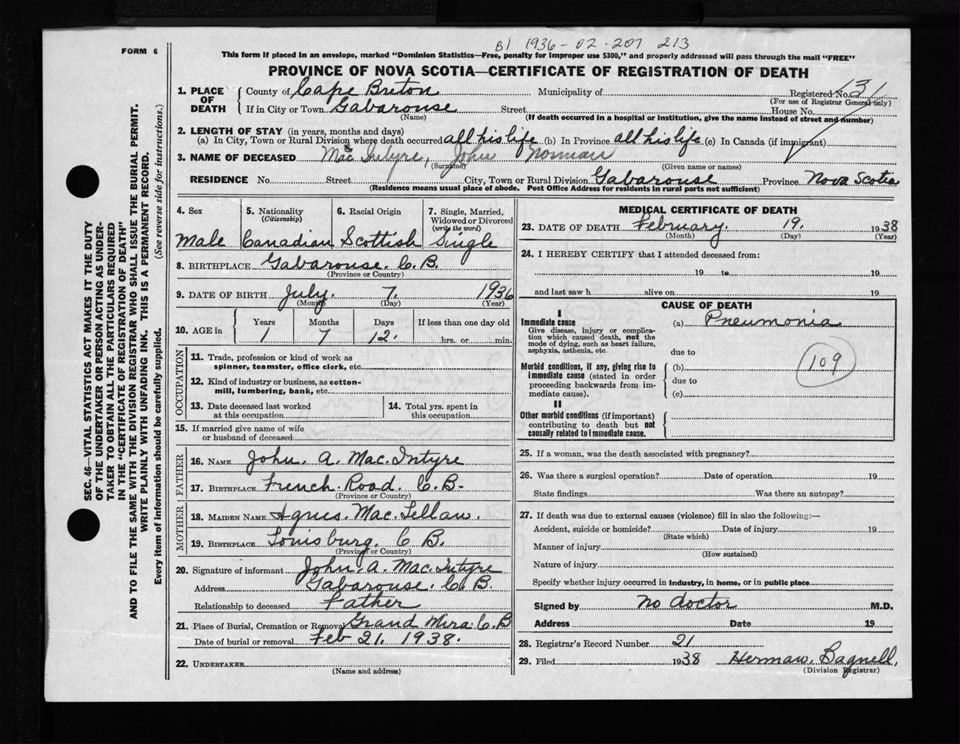 B1 1936-02-207 213
FORM 6
This form if placed in an envelope, marked "Dominion Statistics—Free, penalty for improper use $300," and properly addressed will pass through the mail "FREE"
PROVINCE OF NOVA SCOTIA—CERTIFICATE OF REGISTRATION OF DEATH
1. PLACE OF DEATH County of Cape Breton Municipality of Registered No. 131
(For use of Registrar General only)
If in City or Town Gabarouse Street House No.
(Name) (If death occurred in a hospital or institution, give the name instead of street and number)
2. LENGTH OF STAY (in years, months and days)
(a) In City, Town or Rural Division where death occurred all his life (b) In Province all his life (c) In Canada (if immigrant)
3. NAME OF DECEASED Mac Intyre, John Norman
(Surname) (Given name or names)
RESIDENCE No. Street City, Town or Rural Division Gabarouse Province Nova Scotia
(Residence means usual place of abode. Post Office Address for residents in rural parts not sufficient)
SEC. 46—VITAL STATISTICS ACT MAKES IT THE DUTY
OF THE UNDERTAKER OR PERSON ACTING AS UNDER-
TAKER TO OBTAIN ALL THE PARTICULARS REQUIRED
IN THE "CERTIFICATE OF REGISTRATION OF DEATH"
AND TO FILE THE SAME WITH THE DIVISION REGISTRAR WHO SHALL ISSUE THE BURIAL PERMIT.
WRITE PLAINLY WITH UNFADING INK. THIS IS A PERMANENT RECORD.
Every item of information should be carefully supplied. (See reverse side for instructions.)
4. Sex 5. Nationality (Citizenship) 6. Racial Origin 7. Single, Married, Widowed or Divorced (write the word)
Male Canadian Scottish Single
8. BIRTHPLACE Gabarouse. C.B.
(Province or Country)
9. DATE OF BIRTH July. 7. 1936
(Month) (Day) (Year)
10. AGE in Years Months Days If less than one day old
1 7 12. hrs. or min.
OCCUPATION
11. Trade, profession or kind of work as
spinner, teamster, office clerk, etc.
12. Kind of industry or business, as cotton-
mill, lumbering, bank, etc.
13. Date deceased last worked at this occupation 14. Total yrs. spent in this occupation
15. If married give name of wife
or husband of deceased
FATHER
16. NAME John. A. Mac. Intyre
17. BIRTHPLACE French. Road. C.B.
(Province or Country)
MOTHER
18. MAIDEN NAME Agnes. Mac. Lellan.
19. BIRTHPLACE Louisburg. C B.
(Province or Country)
20. Signature of informant John. A. Mac. Intyre
Address Gabarouse. C.B
Relationship to deceased Father
21. Place of Burial, Cremation or Removal Grand Mira. C.B
Date of burial or removal Feb 21. 1938.
22. UNDERTAKER
(Name and address)
MEDICAL CERTIFICATE OF DEATH
23. DATE OF DEATH February. 19. 1938
(Month) (Day) (Year)
24. I HEREBY CERTIFY that I attended deceased from:
19 to 19
and last saw h alive on 19
CAUSE OF DEATH
I
Immediate cause (a) Pneumonia
Give disease, injury or complica-
tion which caused death, not the
mode of dying, such as heart failure,
asphyxia, asthenia, etc. due to
109
Morbid conditions, if any, giving rise to (b)
immediate cause (stated in order due to
proceeding backwards from im-
mediate cause). (c)
II
Other morbid conditions (if important)
contributing to death but not
causally related to immediate cause.
25. If a woman, was the death associated with pregnancy?
26. Was there a surgical operation? Date of operation 19
State findings Was there an autopsy?
27. If death was due to external causes (violence) fill in also the following:—
Accident, suicide or homicide? Date of injury 19
(State which)
Manner of injury
(How sustained)
Nature of injury
Specify whether injury occurred in industry, in home, or in public place
Signed by No doctor M.D.
Address Date 19
28. Registrar's Record Number 21
29. Filed 1938 Herman. Bagnell.
(Division Registrar)